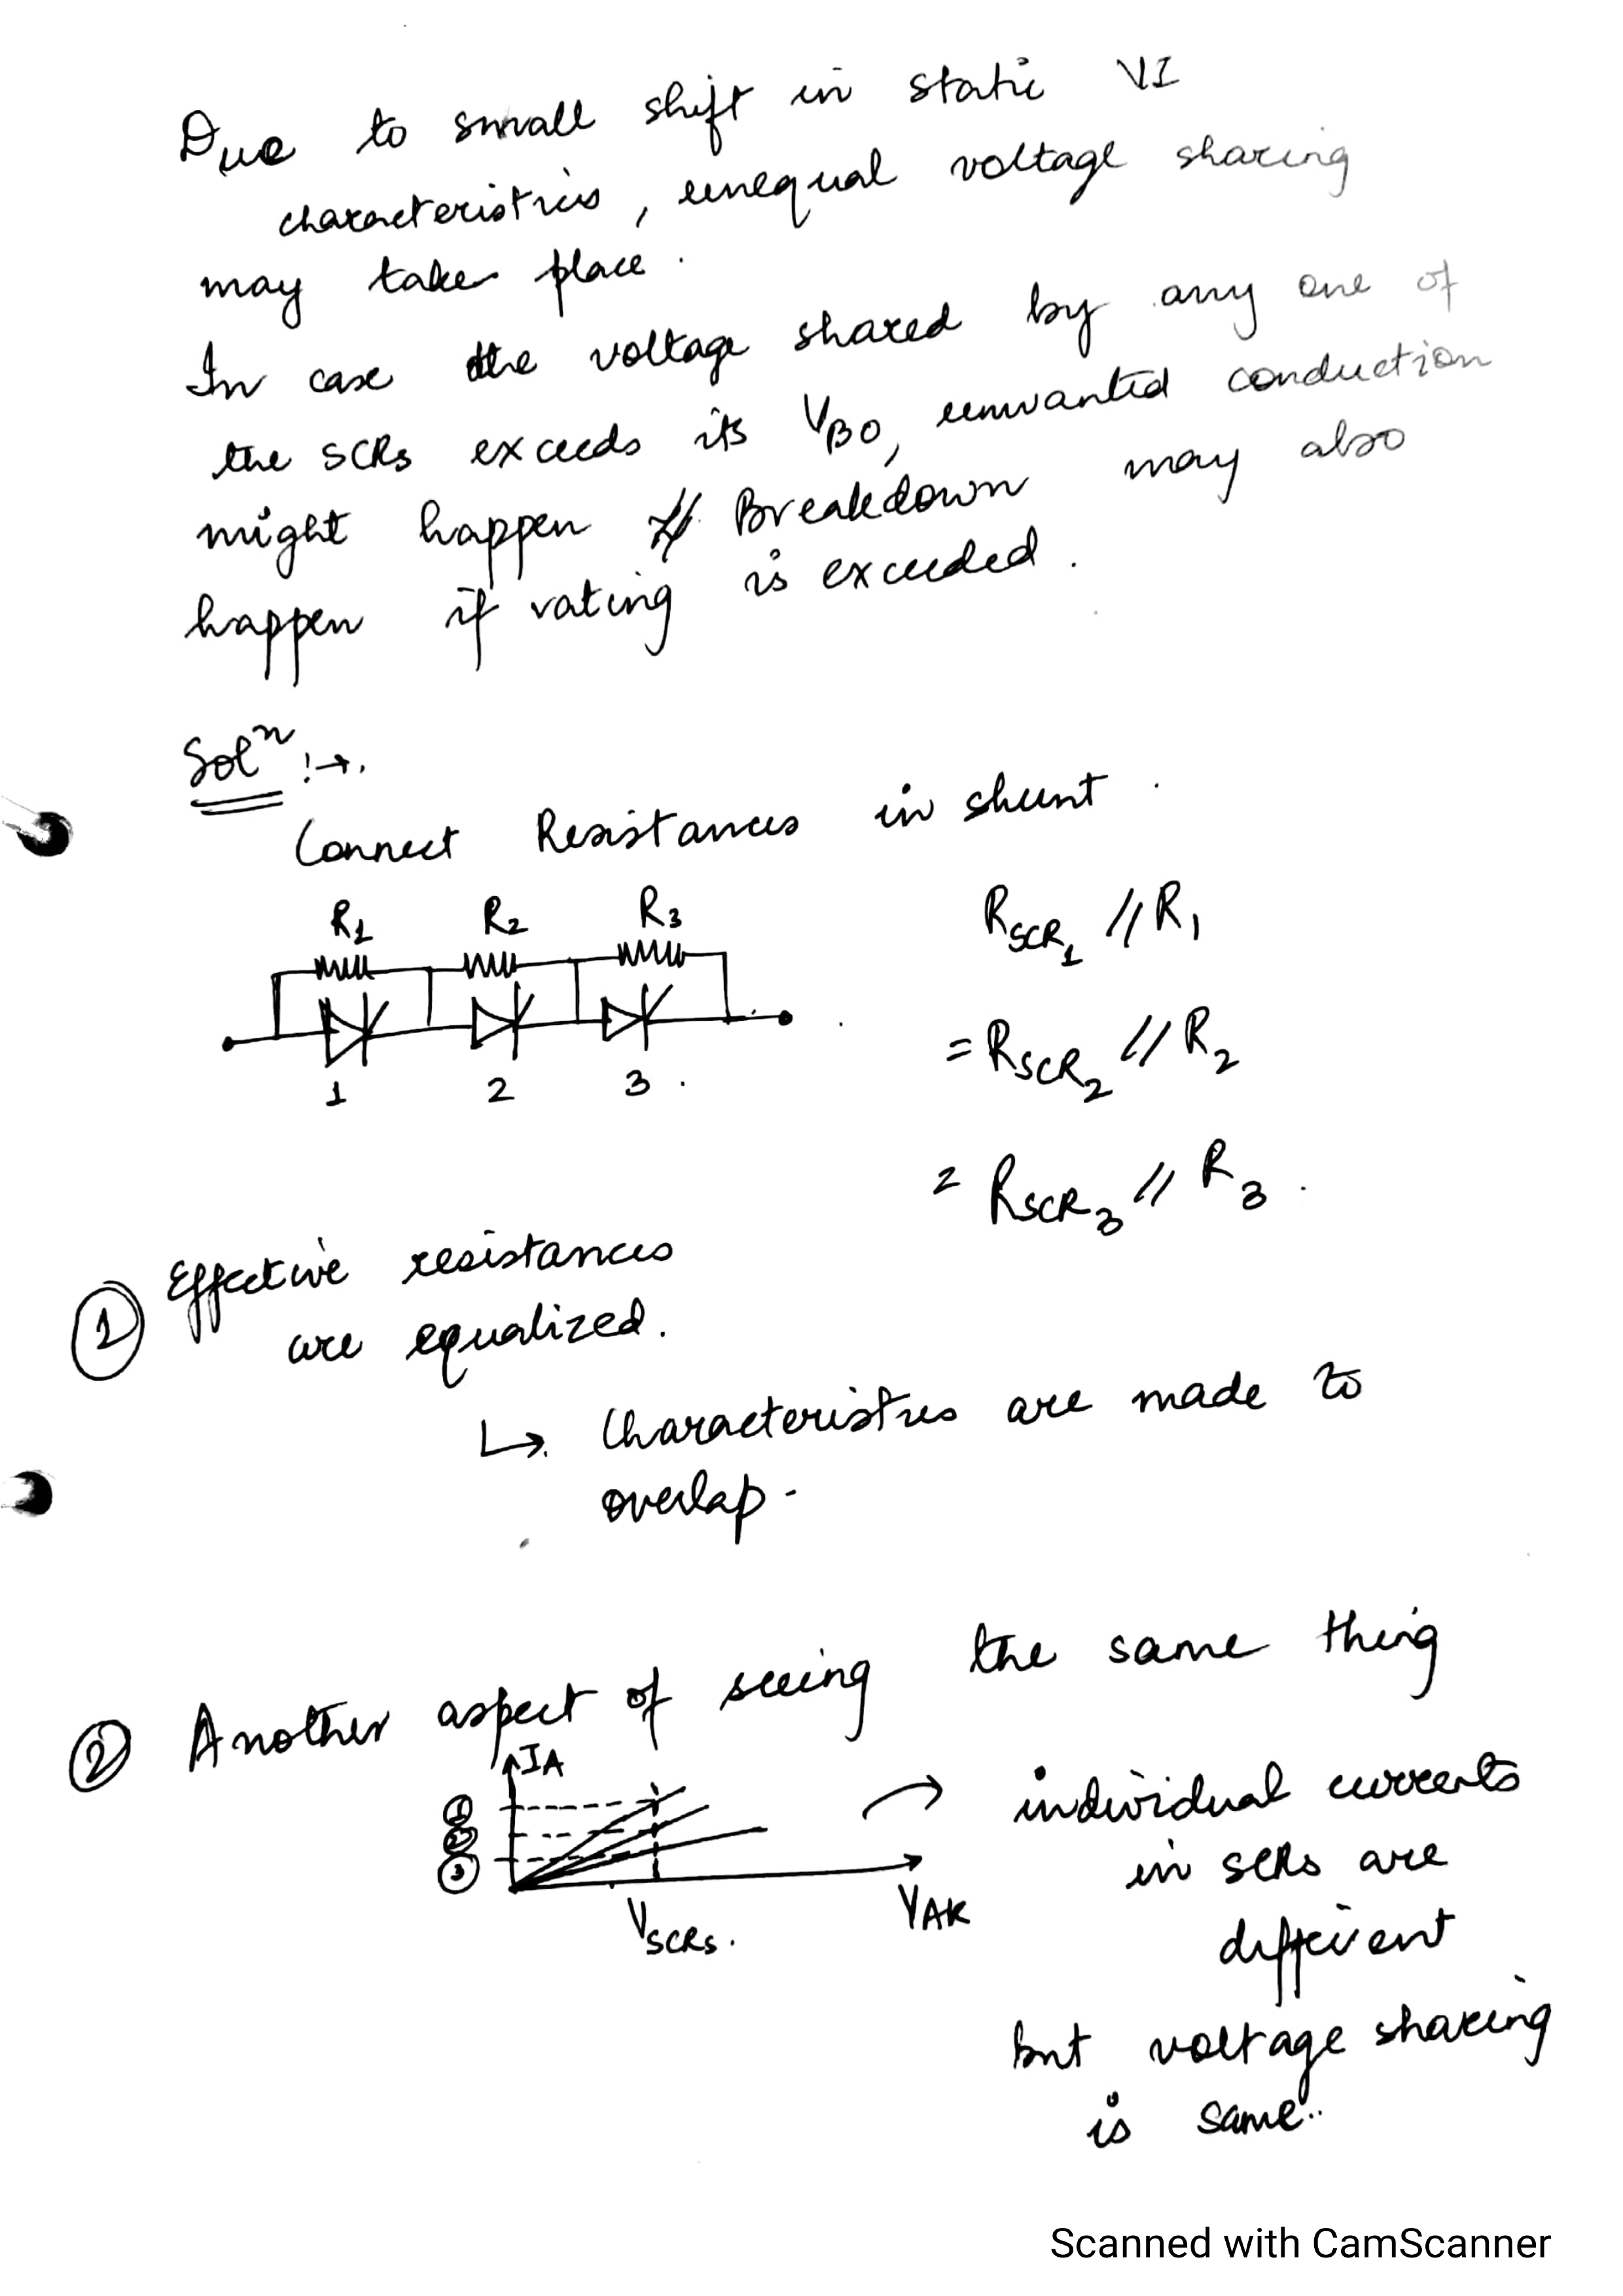 Due to small shift in static VI
characteristics, unequal voltage sharing
may take place.
In case the voltage shared by any one of
the SCRs exceeds its VBO, unwanted conduction
might happen // Breakdown may also
happen if rating is exceeded.
Solⁿ :→.
Connect Resistances in shunt.
R1 R2 R3
1 2 3.
RSCR1 // R1
= RSCR2 // R2
= RSCR3 // R3.
① Effective resistances
are equalized.
↳ Characteristics are made to
overlap.
② Another aspect of seeing the same thing
IA
①
②
③
VSCRs.
VAK
individual currents
in SCRs are
different
but voltage sharing
is same..
Scanned with CamScanner